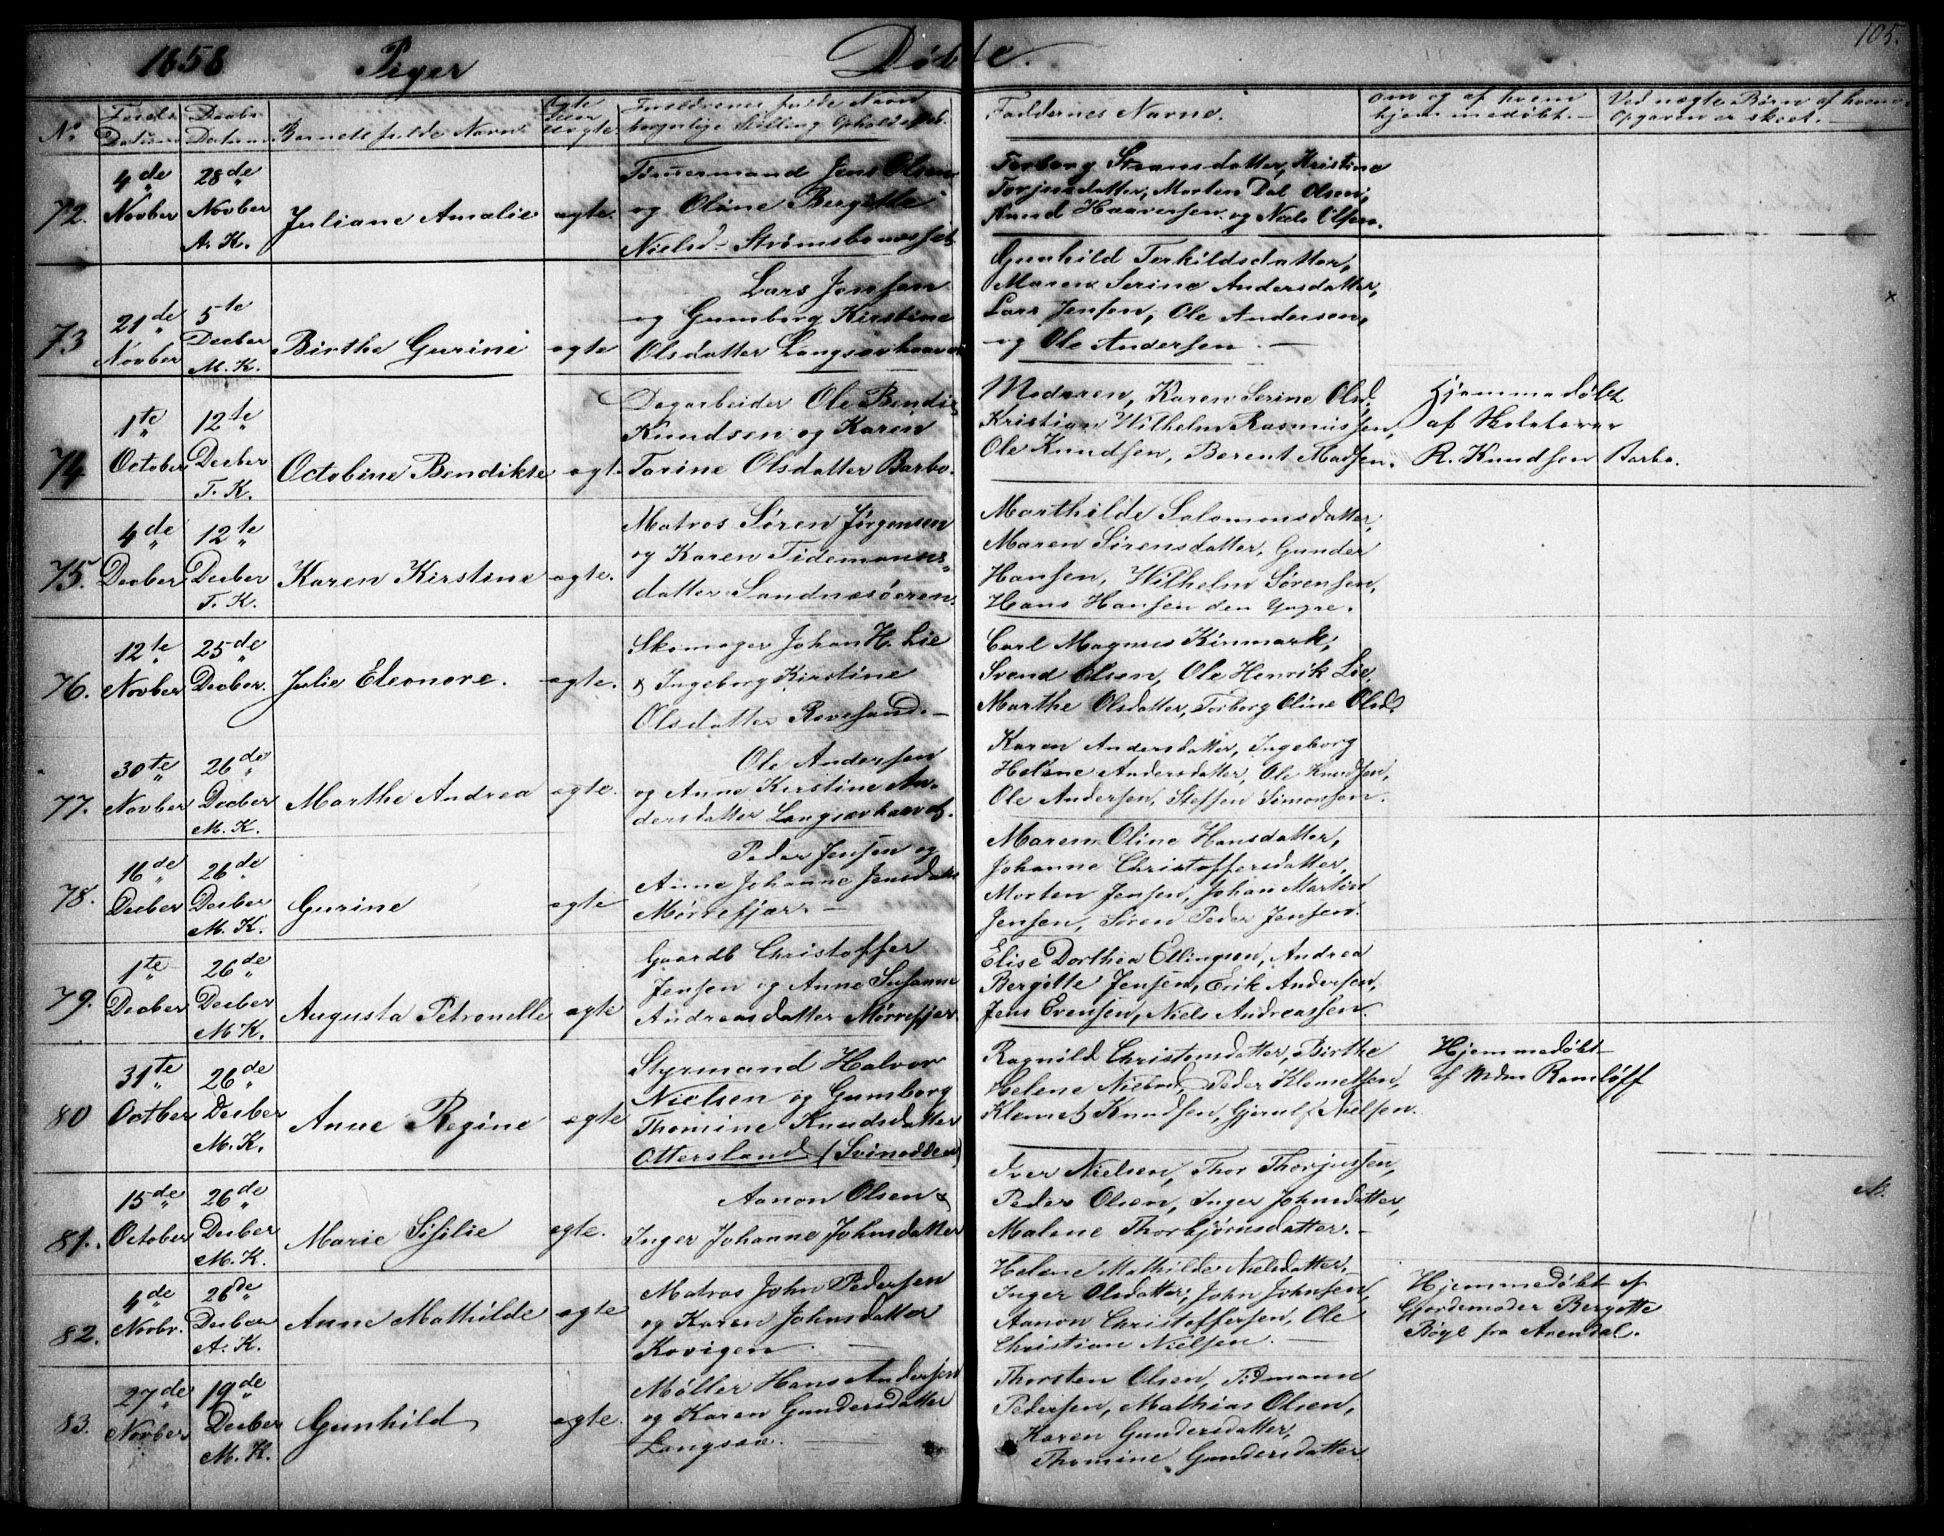 105.
1858 Piger Døbte.
No
Barnets fulde Navn
ægte eller uægte.
Forældrenes fulde Navn
borgerlige Stilling Ophold
Faddernes Navne.
om og af hvem
hjemmedøbt.
Ved uægte Børn af hvem
Opgaven er skeet.
72.
4de
Novber
28de
Novber
A. K.
Juliane Amalie
ægte.
Tømmermand Jens Olsen
og Oline Bergitte
Nielsd. Strømsbo
Torborg Steensdatter, Kristine
Torjusdatter, Morten Dal Olsen,
Knud Haaversen og Niels Olsen.
73
21de
Novber
5te
Decber
M. K.
Birthe Gurine
ægte
Lars Jensen
og Gumborg Kirstine
Olsdatter
Gunhild Terkildsdatter,
Maren Serine Andersdatter,
Lars Jensen, Ole Andersen,
og Ole Andersen.
74
1te
October
12te
Decber
T. K.
Octobine Bendikte
ægte
Dagarbeider Ole Bendix
Knudsen og Karen
Torine Olsdatter Barbo.
Moderen, Karen Serine Olsd.
Kristian Wilhelm Rasmussen,
Ole Knudsen, Berent Madsen.
Hjemmedøbt
af Skolelærer
R. Knudsen Barbo.
75.
4de
Decber
12te
Decber
T. K.
Karen Kirstine
ægte.
Matros Søren Jørgensen
og Karen Tidemanns-
datter Sandnæsøeren.
Marthilde Salomonsdatter,
Maren Sørensdatter, Gunder
Hansen, Wilhelm Sørensen,
Hans Hansen den Yngre.
76.
12te
Novber
25de
Decber.
Julie Eleonore.
ægte.
Skomager Johan H. Lie
& Ingeborg Kirstine
Olsdatter Revesand.
Carl Magnus Kinmark,
Svend Olsen, Ole Henrik Lie,
Marthe Olsdatter, Torborg Oline Olsd.
77.
30te
Novber
26de
Decber
M. K.
Marthe Andrea
ægte.
Ole Andersen
og Anne Kirstine An-
dersdatter
Karen Andersdatter, Ingeborg
Helene Andersdatter, Ole Knudsen,
Ole Andersen, Steffen Simonsen.
78.
16de
Decber
26de
Decber
M. K.
Gurine
ægte
Peder Jensen og
Anne Johanne Jensdatter
Mørrefjær.
Maren Oline Hansdatter,
Johanne Christoffersdatter,
Morten Jensen, Johan Martin
Jensen, Søren Peder Jensen.
79.
1te
Decber
26de
Decber
M. K.
Augusta Petronelle
ægte
Gaardb Christoffer
Jensen og Anne Susanne
Andreasdatter Mørrefjær
Elise Dorthea Ellingsen, Andrea
Bergitte Jensen, Erik Andersen,
Jens Evensen, Niels Andreassen.
80
31te
Octber
26de
Decber
M. K.
Anne Regine
ægte
Styrmand Halvor
Nielsen og Gumborg
Thomine Knudsdatter
Ottersland (Svinodden)
Ragnild Christensdatter, Birthe
Helene Nielsd, Peder Klemetsen,
Klemet Knudsen, Gjerulf Nielsen.
Hjemmedøbt
af Mdm Ramløff
81.
15de
October
26de
Decber
M. K.
Marie Sisilie
ægte.
Aanon Olsen &
Inger Johanne Johnsdatter
Iver Nielsen, Thor Thorjussen,
Peder Olsen, Inger Johnsdatter,
Malene Thorbjørnsdatter.
82.
4de
Novbr.
26de
Decber
A. K.
Anne Mathilde
ægte
Matros John Pedersen
og Karen Johnsdatter
Kovigen.
Helene Mathilde Nielsdatter,
Inger Olsdatter, John Johnsen,
Aanon Christoffersen, Ole
Christian Nielsen.
Hjemmedøbt af
Gjordemoder Bergette
Bøye fra Arendal.
83.
27de
Novber
19de
Decber
M. K.
Gunhild
ægte.
Møller Hans Andersen
og Karen Gundersdatter
Langsæ.
Thorsten Olsen, Tidmann
Pedersen, Mathias Olsen,
Karen Gundersdatter,
Thomine Gundersdatter